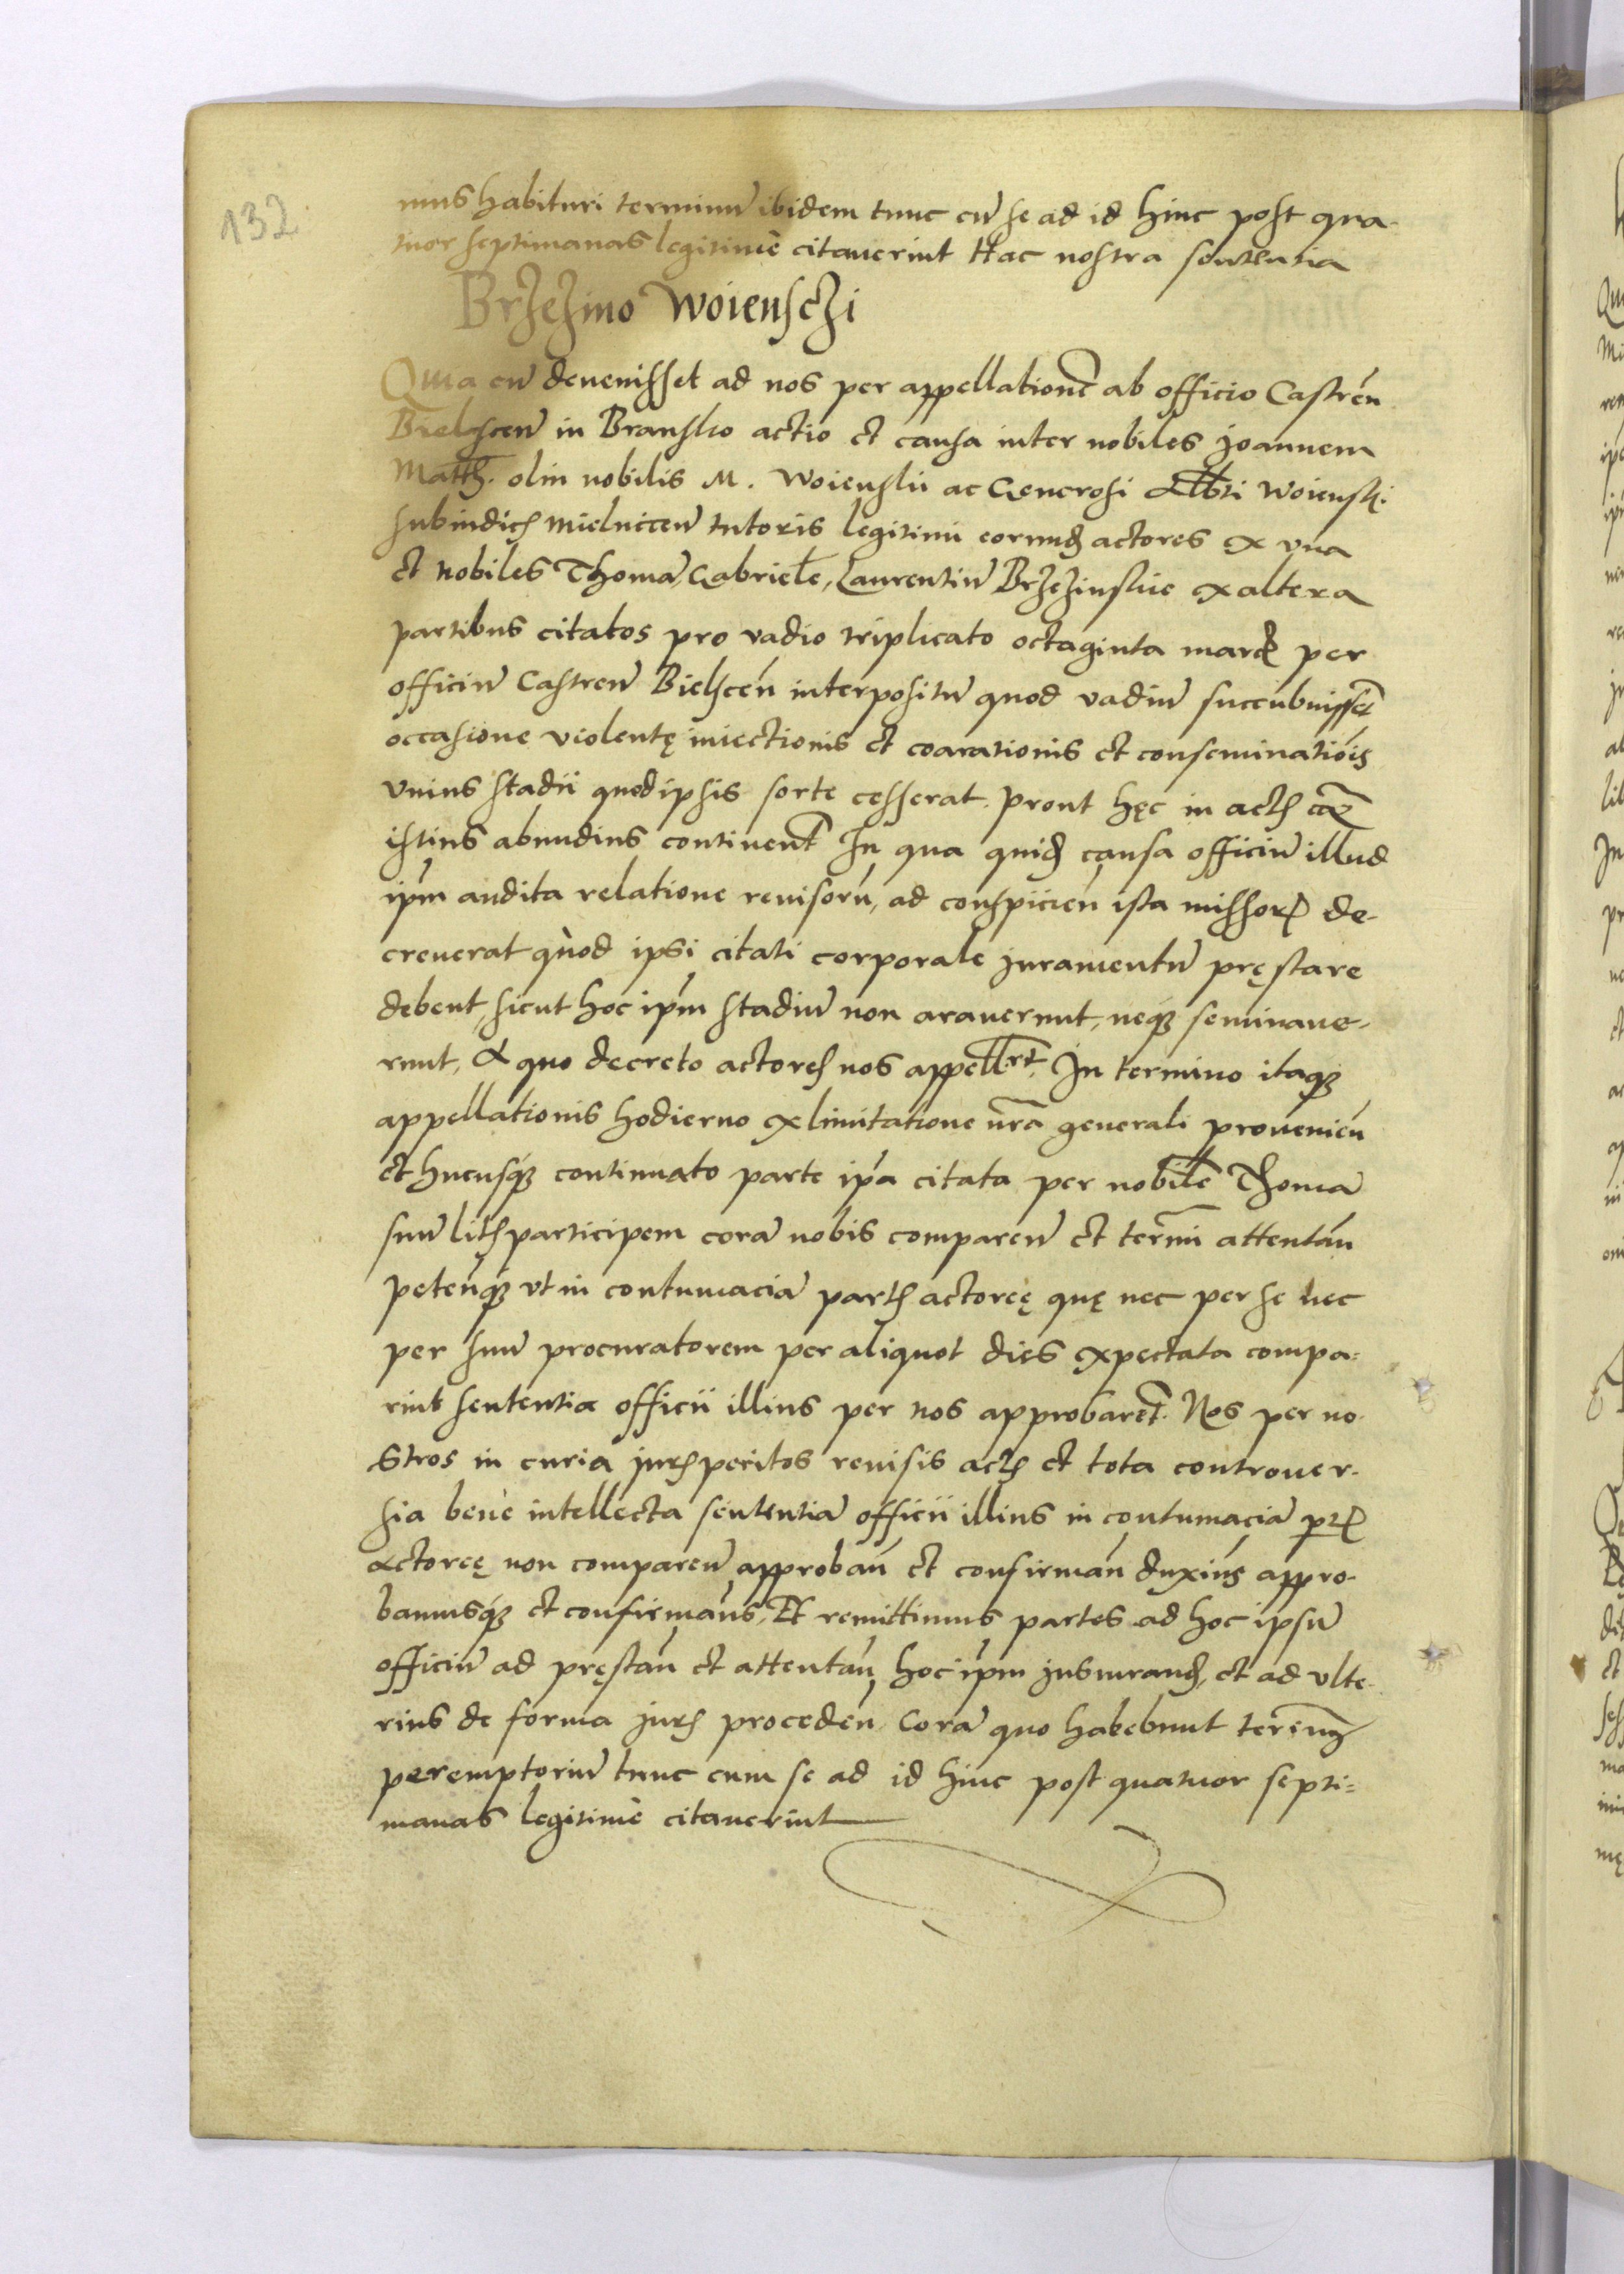 132
mus habituri terminū ibidem tunc cū se ad id hinc post qua-
tuor septimanas legitimè citauerint Hac nostra sententia
Brzezino Woienschi
Quia cū deuenisset ad nos per appellationē ab officio Castreń
Bielsceń in Bransko actio et causa inter nobiles Joannem
Matth. olim nobilis M. Woienskii ac Generosi Alberti Woiensk.
subiudicis Mielniceń tutoris legitimi eorund actores ex vna
et nobiles Thomā, Gabrielē, Laurentiū Brzezinskie ex altera
partibus citatos pro vadio triplicato octaginta marc per
officiū Castreń Bielsceń interpositū quod vadiū succubuissēt
occasione violentę iniectionis et coarationis et conseminatiōis
vnius stadii quod ipsis sorte cesserat. prout hęc in actis
istius abundius continent In qua quid causa officiū illud
ipm̄ audita relatione reuisorū, ad conspicień ista missor de-
creuerat quòd ipsi citati corporale juramentū pręstare
debent, sicut hoc ipm̄ stadiū non arauerunt, neq seminaue-
runt, A quo decreto actores nos appellrt. In termino itaq
appellationis hodierno ex limitatione nrā generali prouenień
et hucusq continuato parte ipā citata per nobilē Thomā
suū litis participem corā nobis compareń et termī attentāń
peteńq vt in contumaciā partis actoreę quę nec per se nec
per suū procuratorem per aliquot dies expectata compa-
ruit sententia officii illius per nos approbaret. Nos per no-
stros in curia juris peritos reuisis actis et tota controuer-
sia benè intellecta sententiā officii illius in contumaciā
actoreę non compareń approbāń et confirmāń duxim̄s appro-
bamusq et confirmam̄s, Et remittimus partes ad hoc ipsū
officiū ad pręstāń et attentāń hoc ipm̄ jusiurand, et ad vlte-
rius de forma juris procedeń Corā quo habebunt termīnū
peremptoriū tunc cum se ad id hinc post quatuor septi-
manas legitimè citauerint